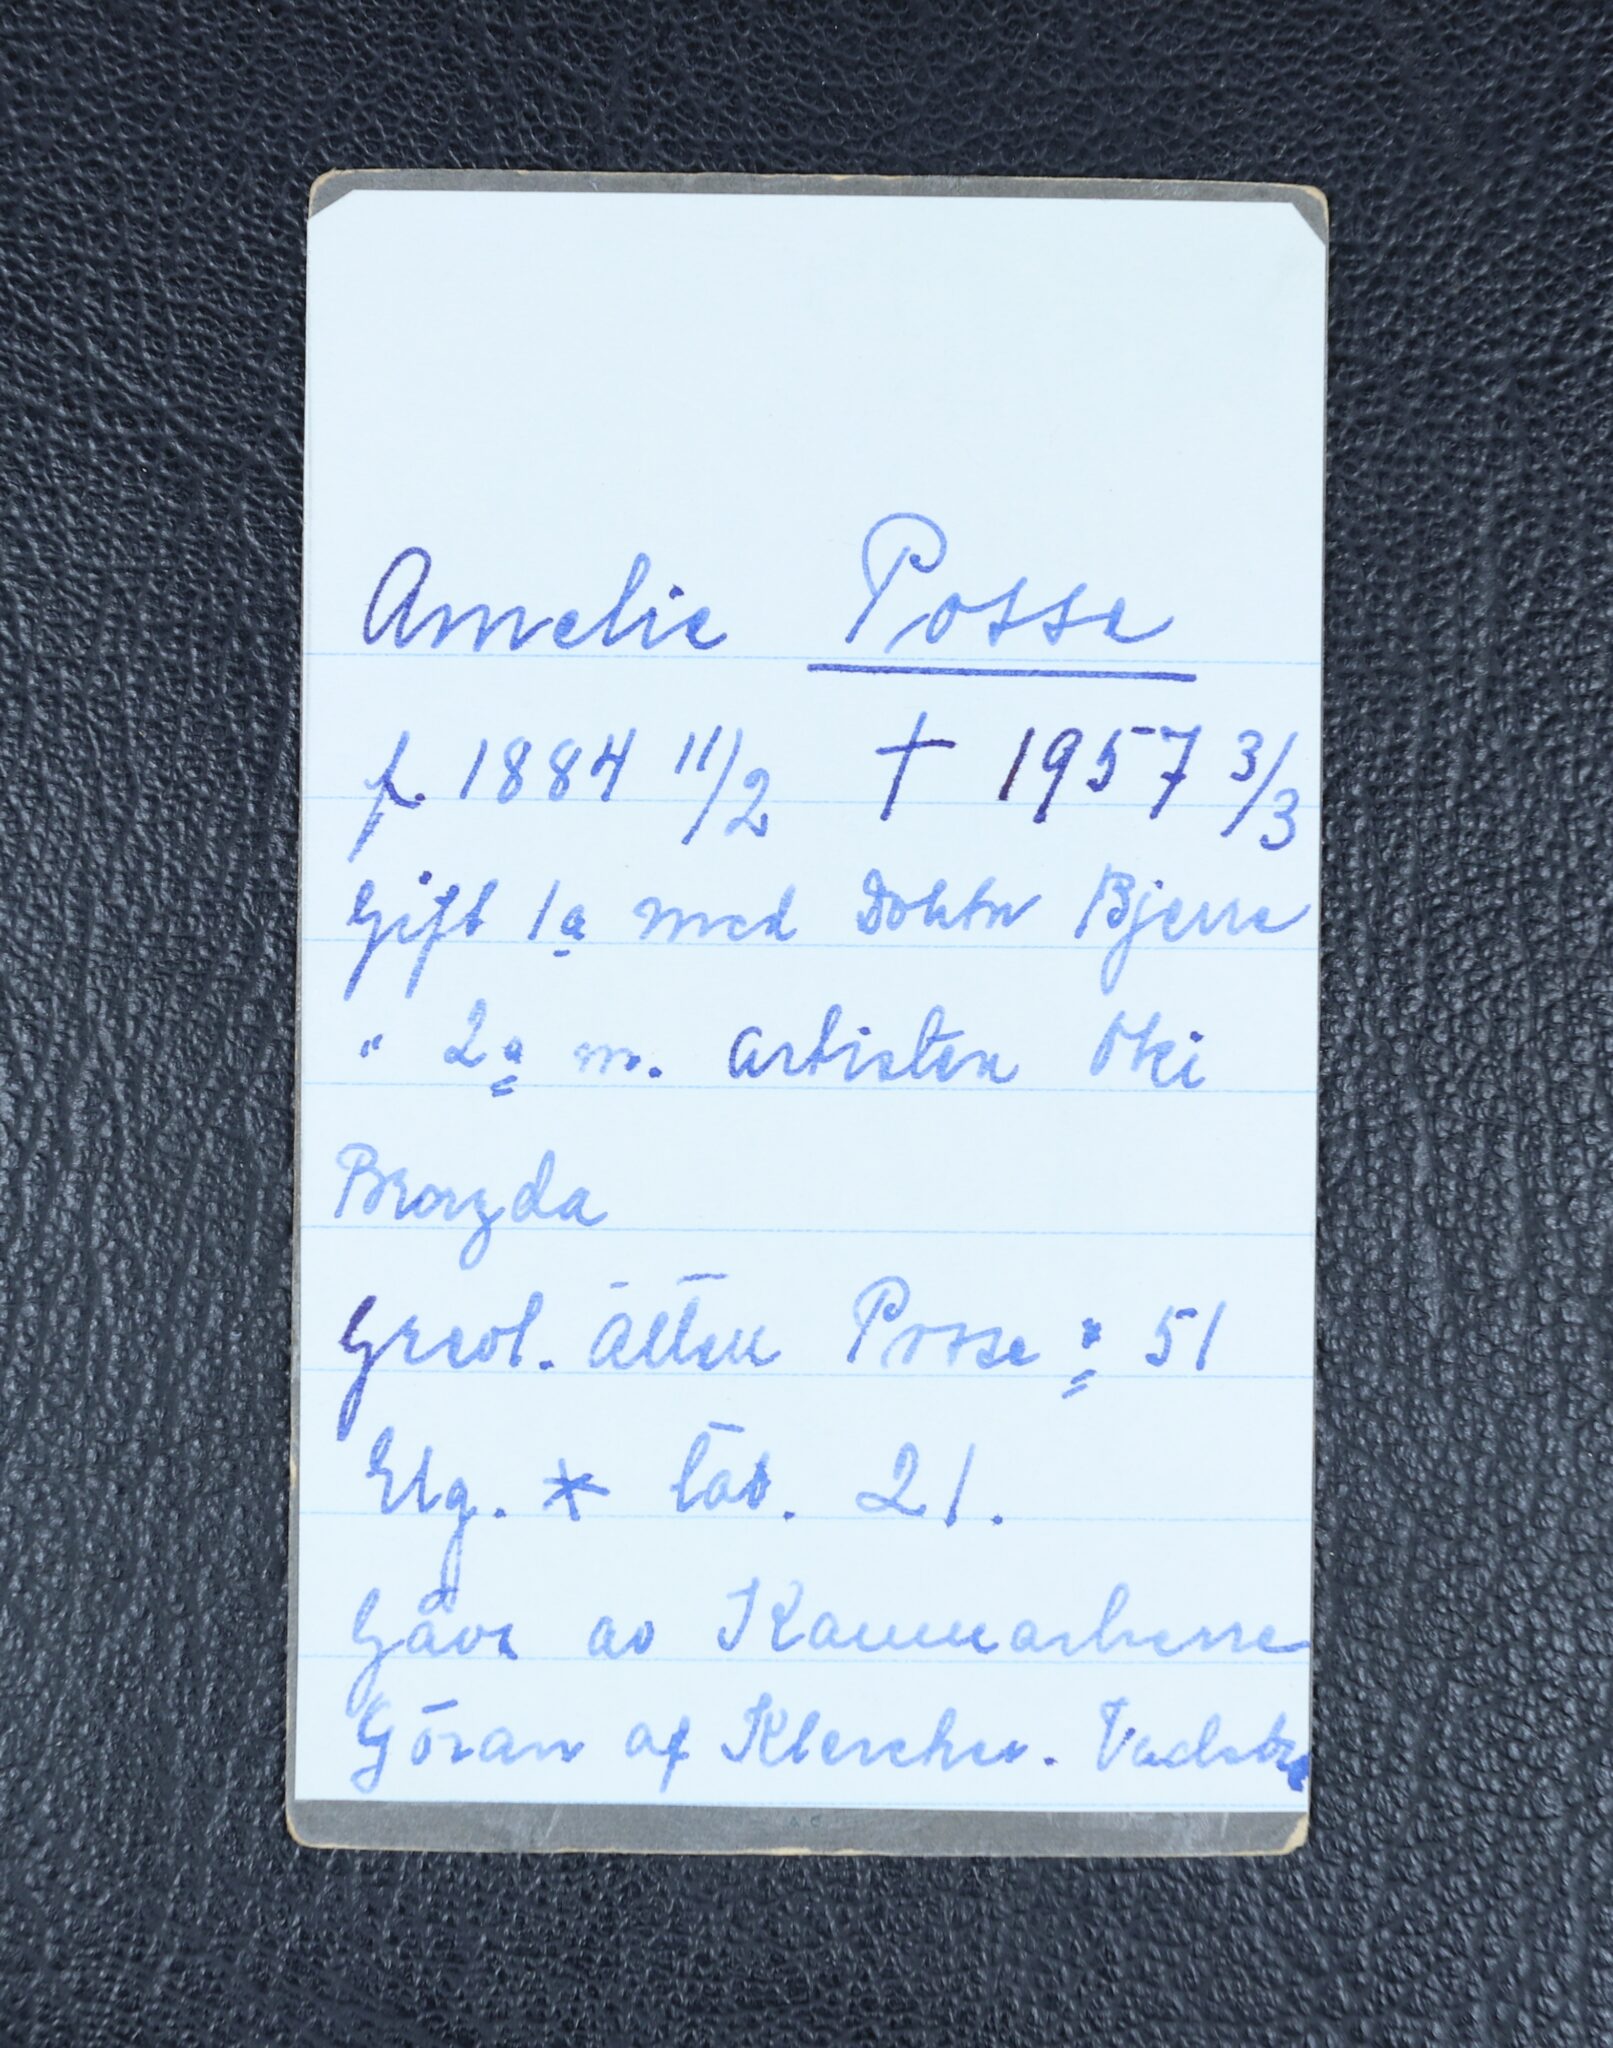 Amelie Posse
f. 1884 11/2 † 1957 3/3
Gift 1a med Doktor Bjerre
" 2a m. artisten Oki
Brazda
Grevl. ätten Posse: 51
Elg. * tav. 21.
Gåva av Kammarherre
Göran af Klercker. Vadst